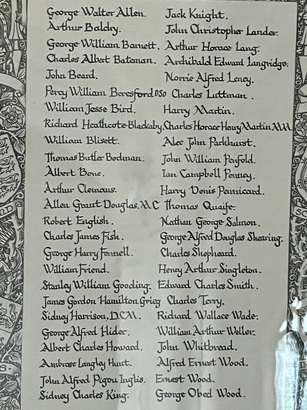 George Walter Allen. Jack Knight.
Arthur Baldry. John Christopher Lander.
George William Barnett. Arthur Horace Lang.
Charles Albert Bateman. Archibald Edward Langridge.
John Beard. Norrie Alfred Leney.
Percy William Beresford DSO Charles Luttman.
William Jesse Bird. Harry Martin.
Richard Heathcote-Blackaby. Charles Horace Haury Martin. M.M.
William Blisett. Alec John Parkhurst.
Thomas Butler Bodman. John William Penfold.
Albert Bone. Ian Campbell Penney.
Arthur Clemans. Harry Denis Pennicard.
Allen Grant Douglas, M.C. Thomas Quaife.
Robert English. Nathan George Salmon.
Charles James Fish. George Alfred Douglas Shearing.
George Harry Fennell. Charles Shepheard.
William Friend. Henry Arthur Singleton.
Stanley William Gooding. Edward Charles Smith.
James Gordon Hamilton Grieg Charles Terry.
Sidney Harrison, D.C.M. Richard Wallace Wade.
George Alfred Hider. William Arthur Weller.
Albert Charles Howard. John Whitbread.
Ambrose Langley Hunt. Alfred Ernest Wood.
John Alfred Pigou Inglis. Ernest Wood.
Sidney Charles King. George Obed Wood.